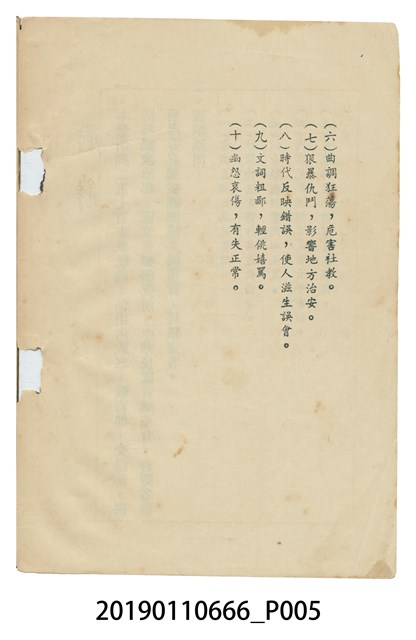 （六）曲調狂蕩，危害社教。
（七）狠暴仇鬥，影響地方治安。
（八）時代反映錯誤，使人滋生誤會。
（九）文詞粗鄙，輕佻嬉罵。
（十）幽怨哀傷，有失正常。
20190110666_P005